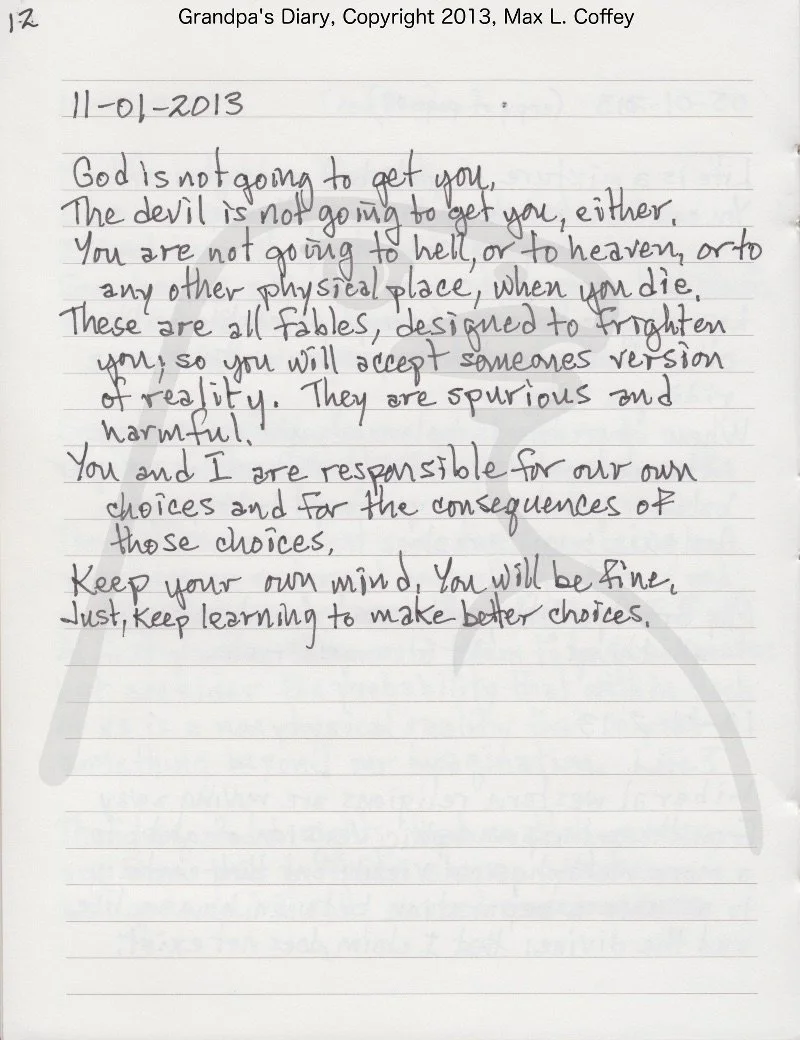 12
Grandpa's Diary, Copyright 2013, Max L. Coffey
11-01-2013
God is not going to get you,
The devil is not going to get you, either.
You are not going to hell, or to heaven, or to
any other physical place, when you die.
These are all fables, designed to frighten
you; so you will accept someones version
of reality. They are spurious and
harmful.
You and I are responsible for our own
choices and for the consequences of
those choices.
Keep your own mind. You will be fine.
Just, keep learning to make better choices.